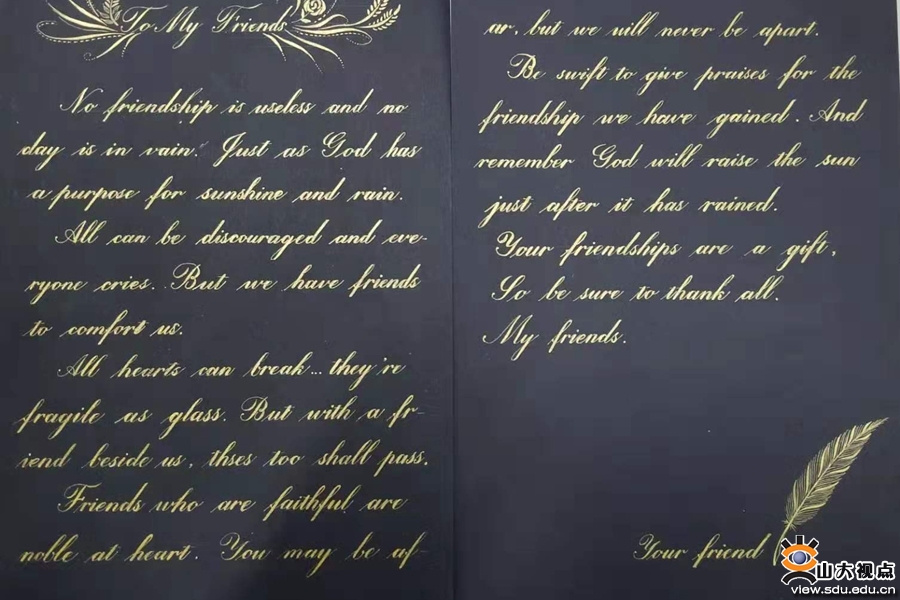 To My Friends
No friendship is useless and no
day is in vain. Just as God has
a purpose for sunshine and rain.
All can be discouraged and eve-
ryone cries. But we have friends
to comfort us.
All hearts can break... they're
fragile as glass. But with a fr-
iend beside us, thses too shall pass.
Friends who are faithful are
noble at heart. You may be af-
ar, but we will never be apart.
Be swift to give praises for the
friendship we have gained. And
remember God will raise the sun
just after it has rained.
Your friendships are a gift,
So be sure to thank all.
My friends.
Your friend
山大视点
view.sdu.edu.cn